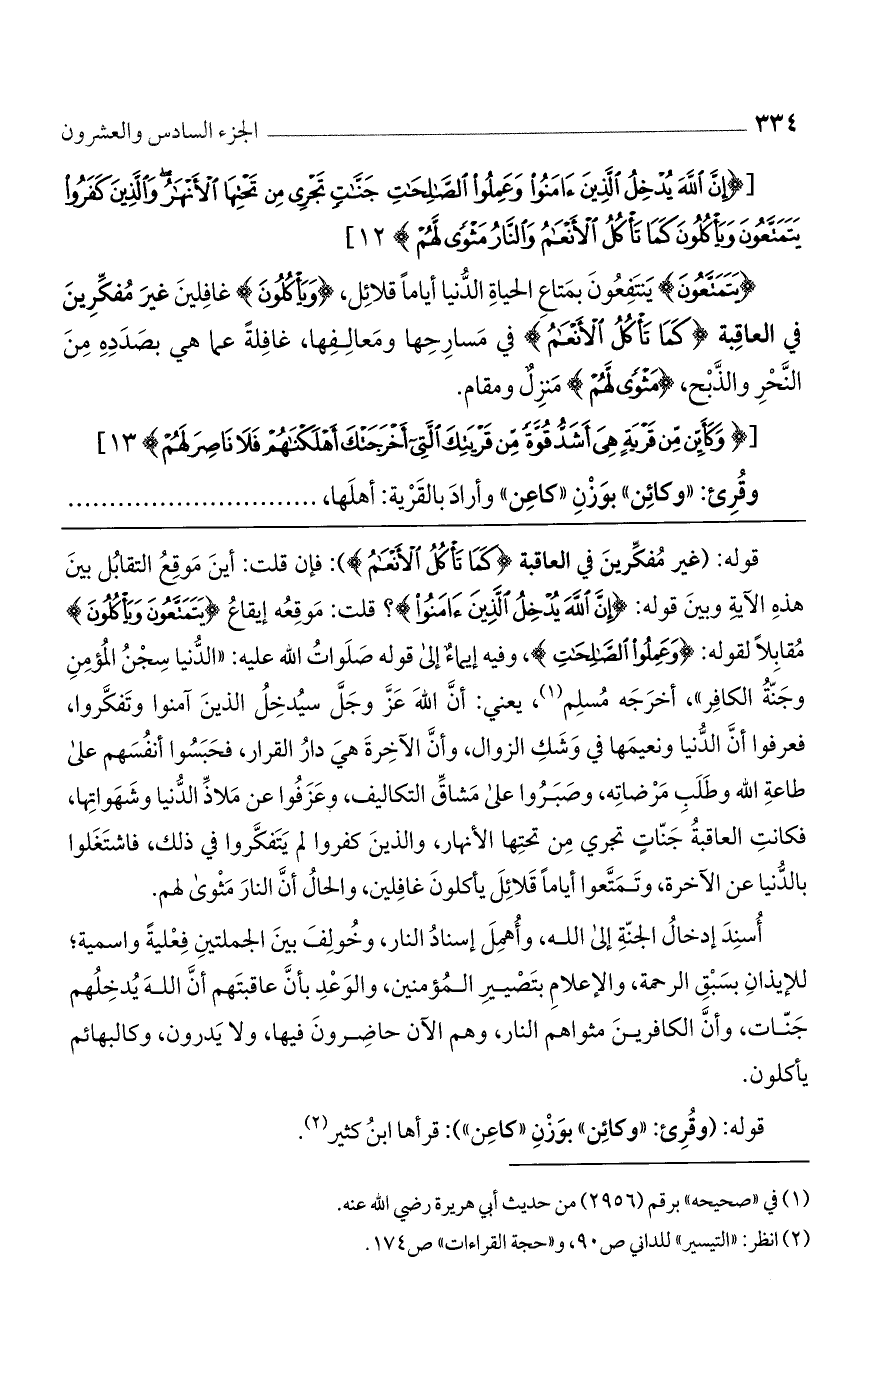 ٣٣٤ الجزء السادس والعشرون
[﴿إِنَّ ٱللَّهَ يُدْخِلُ ٱلَّذِينَ ءَامَنُوا۟ وَعَمِلُوا۟ ٱلصَّـٰلِحَـٰتِ جَنَّـٰتٍ تَجْرِى مِن تَحْتِهَا ٱلْأَنْهَـٰرُ ۖ وَٱلَّذِينَ كَفَرُوا۟
يَتَمَتَّعُونَ وَيَأْكُلُونَ كَمَا تَأْكُلُ ٱلْأَنْعَـٰمُ وَٱلنَّارُ مَثْوًى لَّهُمْ﴾ ١٢]
﴿يَتَمَتَّعُونَ﴾ يَنتَفِعُونَ بمَتاعِ الحياةِ الدُّنيا أياماً قلائِل، ﴿وَيَأْكُلُونَ﴾ غافِلينَ غيرَ مُفكِّرينَ
في العاقِبة ﴿كَمَا تَأْكُلُ ٱلْأَنْعَـٰمُ﴾ في مَسارِحِها ومَعالِفِها، غافِلةً عما هي بصَدَدِهِ مِنَ
النَّحْرِ والذَّبْح، ﴿مَثْوًى لَّهُمْ﴾ مَنزِلٌ ومقام.
[﴿وَكَأَيِّن مِّن قَرْيَةٍ هِىَ أَشَدُّ قُوَّةً مِّن قَرْيَتِكَ ٱلَّتِىٓ أَخْرَجَتْكَ أَهْلَكْنَـٰهُمْ فَلَا نَاصِرَ لَهُمْ﴾ ١٣]
وقُرِئ: «وكائِن» بوَزْنِ «كاعِن» وأرادَ بالقَرْية: أهلَها، ..............................
قوله: (غير مُفكِّرينَ في العاقبة ﴿كَمَا تَأْكُلُ ٱلْأَنْعَـٰمُ﴾): فإن قلت: أينَ مَوقِعُ التقابُل بينَ
هذهِ الآيةِ وبينَ قوله: ﴿إِنَّ ٱللَّهَ يُدْخِلُ ٱلَّذِينَ ءَامَنُوا۟﴾؟ قلت: مَوقِعُه إيقاعُ ﴿يَتَمَتَّعُونَ وَيَأْكُلُونَ﴾
مُقابِلاً لقوله: ﴿وَعَمِلُوا۟ ٱلصَّـٰلِحَـٰتِ﴾، وفيه إيماءٌ إلىٰ قوله صَلَواتُ الله عليه: «الدُّنيا سِجْنُ المُؤمِنِ
وجَنّةُ الكافِر»، أخرَجَه مُسلِم(١)، يعني: أنَّ اللهَ عَزَّ وجَلَّ سيُدخِلُ الذينَ آمنوا وتَفكَّروا،
فعرفوا أنَّ الدُّنيا ونعيمَها في وَشَكِ الزوال، وأنَّ الآخِرةَ هيَ دارُ القرار، فحَبَسُوا أنفُسَهم علىٰ
طاعةِ الله وطَلَبِ مَرْضاتِه، وصَبَرُوا علىٰ مَشاقِّ التكاليف، وعَزَفُوا عن مَلاذِّ الدُّنيا وشَهَواتِها،
فكانتِ العاقبةُ جَنّاتٍ تجري مِن تحتِها الأنهار، والذينَ كفروا لم يَتَفكَّروا في ذلك، فاشتَغَلوا
بالدُّنيا عن الآخرة، وتَـمَتَّعوا أياماً قَلائِلَ يأكلونَ غافِلين، والحالُ أنَّ النارَ مَثْوىٰ لهم.
أُسنِدَ إدخالُ الجنّةِ إلىٰ اللـه، وأُهمِلَ إسنادُ النار، وخُولِفَ بينَ الجملتينِ فِعْليةً واسمية؛
للإيذانِ بسَبْقِ الرحمة، والإعلامِ بتَصْيـيرِ الـمُؤمنين، والوَعْدِ بأنَّ عاقبتَهم أنَّ اللـهَ يُدخِلُهم
جَنّـات، وأنَّ الكافريـنَ مثواهم النار، وهم الآن حاضِـرونَ فيها، ولا يَدرون، وكالبهائم
يأكلون.
قوله: (وقُرِئ: «وكائِن» بوَزْنِ «كاعِن»): قرأها ابنُ كثير(٢).
(١) في «صحيحه» برقم (٢٩٥٦) من حديث أبي هريرة رضي الله عنه.
(٢) انظر: «التيسير» للداني ص٩٠، و«حجة القراءات» ص١٧٤.